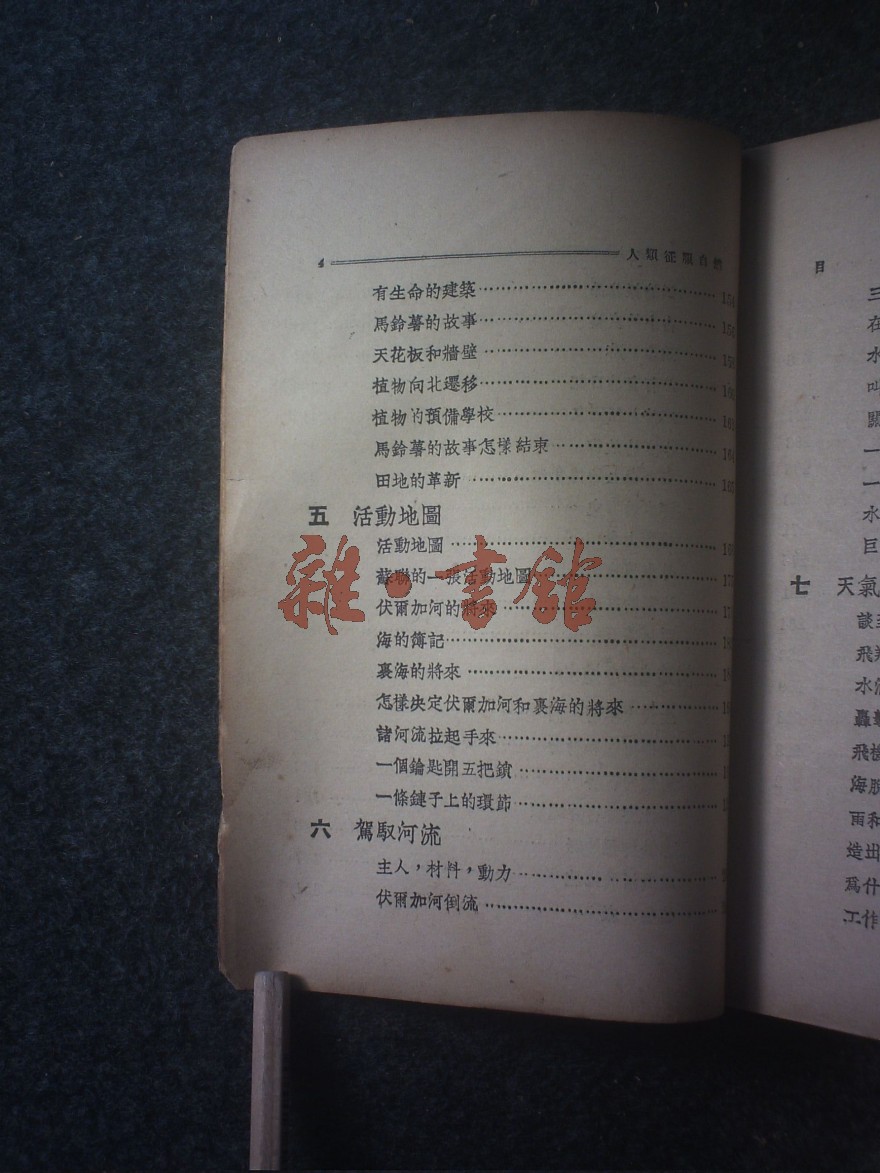 4 人類征服自然
有生命的建築
馬鈴薯的故事
天花板和牆壁
植物向北遷移
植物的預備學校
馬鈴薯的故事怎樣結束
田地的革新
五 活動地圖
活動地圖
蘇聯的一張活動地圖
伏爾加河的將來
海的簿記
裏海的將來
怎樣決定伏爾加河和裏海的將來
諸河流拉起手來
一個鑰匙開五把鎖
一條鏈子上的環節
六 駕馭河流
主人，材料，動力
伏爾加河倒流
雜·書館
目
三
在
水
叫
一
一
水
巨
七 天氣
談
飛
水
轟
飛
海
雨和
造出
爲什
工作